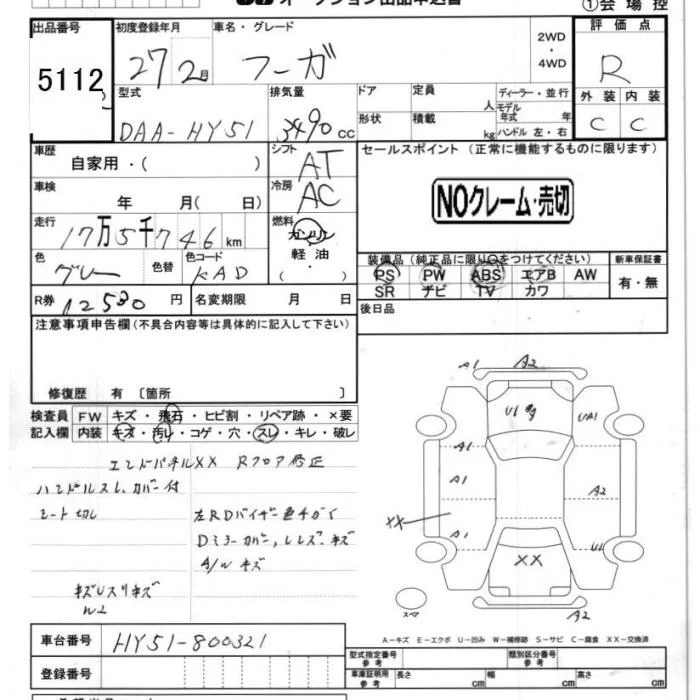 ①会場控
出品番号 5112
初度登録年月 27 2月
車名・グレード フーガ
2WD・4WD
評価点 R
型式 DAA-HY51
排気量 3490 cc
ドア
形状
定員 人
積載 kg
ディーラー・並行
モデル年式 年
ハンドル 左・右
外装 内装
C C
車歴 自家用・( )
シフト AT
車検 年 月( 日)
冷房 AC
走行 17万5千746 km
燃料 ガソリン・軽油・( )
色 グレー
色替
色コード KAD
R券 12530 円
名変期限 月 日
セールスポイント(正常に機能するものに限ります)
NOクレーム・売切
装備品(純正品に限り○をつけてください)
新車保証書
PS PW ABS エアB AW
SR ナビ TV カワ
有・無
後日品
注意事項申告欄(不具合内容等は具体的に記入して下さい)
修復歴 有〔箇所 〕
検査員記入欄
FW キズ・飛石・ヒビ割・リペア跡・×要
内装 キズ・汚れ・コゲ・穴・スレ・キレ・破レ
エンドパネルXX Rフロア修正
ハンドルスレ、カバー付
シート切レ
左RDバイザー色チガイ
Dミラーカバー、レンズキズ
A/Wキズ
キズUスリキズ
W2
A1 A2
U1 UA1
A1
A1 A2
XX A1 U1
XX
スペア
A2
A-キズ E-エクボ U-凹み W-補修跡 S-サビ C-腐食 XX-交換済
車台番号 HY51-800321
登録番号
型式指定番号 参考
類別区分番号 参考
車庫証明用 参考 長さ cm 幅 cm 高さ cm